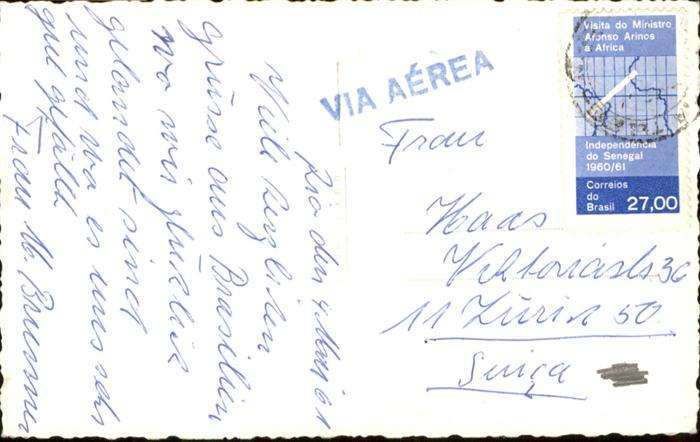 Rio den 4. Mai 61
Viele herzlichen
Grüsse aus Brasilien
wo wir glücklich
gelandet sind
und wo es uns sehr
gut gefällt
Frau M. Brunner
VIA AÉREA
Frau
Haas
Viktoriastr 36
11 Zürich 50
Suiça
Visita do Ministro
Afonso Arinos
a Africa
Independência
do Senegal
1960/61
Correios
do
Brasil 27,00